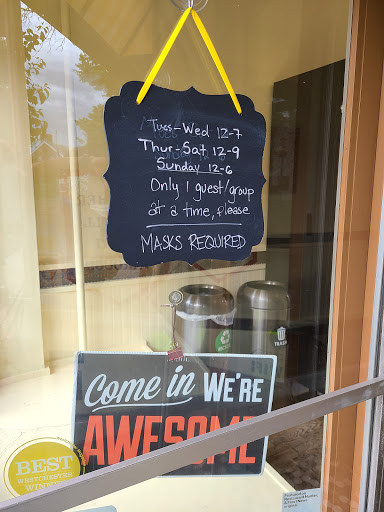 Tues-Wed 12-7
Thur-Sat 12-9
Sunday 12-6
Only 1 guest/group
at a time, please
MASKS REQUIRED
Come in WE'RE
AWESOME
BEST
WESTCHESTER
WINNER
TRASH